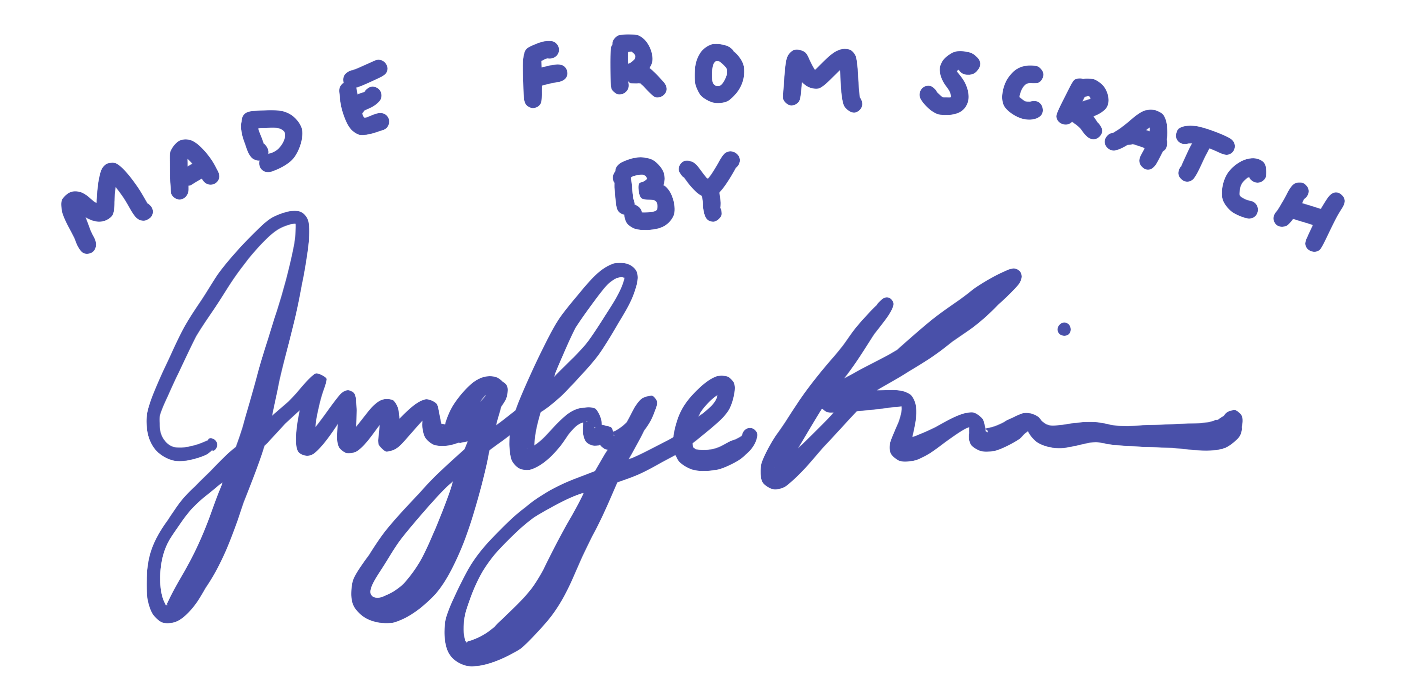 MADE FROM SCRATCH
BY
Junghye Kim